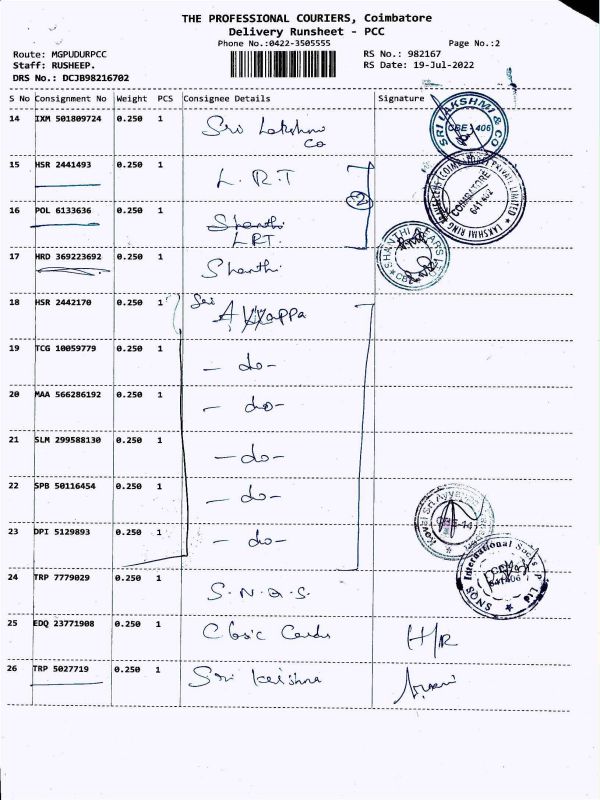 THE PROFESSIONAL COURIERS, Coimbatore
Delivery Runsheet - PCC
Phone No.:0422-3505555
Page No.:2
Route: MGPUDURPCC
RS No.: 982167
Staff: RUSHEEP.
RS Date: 19-Jul-2022
DRS No.: DCJB98216702
S No Consignment No Weight PCS Consignee Details Signature
14 IXM 501809724 0.250 1 Sri Lakshmi
Co
SRI LAKSHMI & CO
CBE - 406
15 HSR 2441493 0.250 1 L.R.T
2
LAKSHMI RING
(COIMBATORE) PRIVATE LIMITED
COIMBATORE
641 402
16 POL 6133636 0.250 1 Shanthi
LRT.
17 HRD 369223692 0.250 1 Shanthi
SHANTHI GEARS
CBE
18 HSR 2442170 0.250 1 Sri
Ayyappa
19 TCG 10059779 0.250 1 - do -
20 MAA 566286192 0.250 1 - do -
21 SLM 299588130 0.250 1 - do -
22 SPB 50116454 0.250 1 - do -
Kovai Sri Ayyappa
CBE-14
23 DPI 5129893 0.250 1 - do -
SNQS International Socks P Ltd
641406
24 TRP 7779029 0.250 1 S.N.Q.S.
25 EDQ 23771908 0.250 1 Clasic Cards H/R
26 TRP 5027719 0.250 1 Sri Krishna